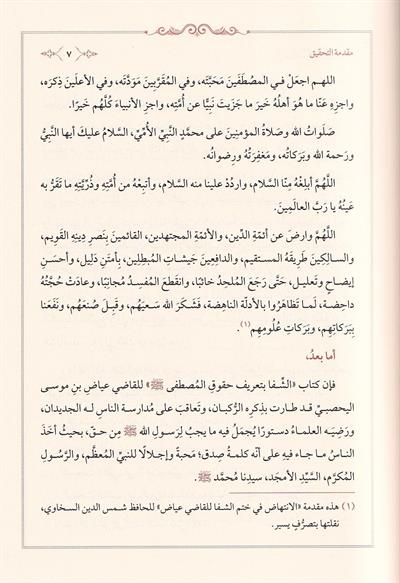 مقدمة التحقيق
٧
اللهم اجعَلْ في المصْطَفَينَ مَحَبَّتَه، وفي المُقَرَّبينَ مَوَدَّتَه، وفي الأعلَينَ ذِكرَه،
واجزِهِ عَنّا ما هُوَ أهلُهُ خَيرَ ما جَزَيتَ نَبِيًّا عن أُمَّتِه، واجزِ الأنبياءَ كُلَّهُم خَيرًا.
صَلَواتُ الله وصَلاةُ المؤمنِينَ على محمَّدٍ النَّبِيِّ الأُمِّيِّ، السَّلامُ عليكَ أيها النَّبِيُّ
ورَحمة الله وبَرَكاتُه، ومَغفِرَتُه ورِضوانُه.
اللَّهُمَّ أبلِغْهُ مِنّا السلام، واردُدْ علينا منه السلام، وأتبِعْهُ من أُمَّتِهِ وذُرِّيَّتِهِ ما تَقَرُّ به
عَينُهُ يا رَبَّ العالَمِينَ.
اللَّهُمَّ وارضَ عن أئمّةِ الدِّين، والأئمّةِ المجتهدين، القائمينَ بنَصرِ دِينِهِ القَوِيم،
والسالِكِينَ طَرِيقَهُ المستقيم، والدافِعِينَ جَيشاتِ المبطِلِين، بأَمتَنِ دَلِيل، وأحسَنِ
إيضاحٍ وتعليل، حَتَّى رَجَعَ المُلحِدُ خائبًا، وانقَطَعَ المُفسِدُ مُجانِبًا، وعادَتْ حُجَّتُهُ
داحِضة، لَما تَظاهَرُوا بالأدلّة الناهِضة، فَشَكَرَ الله سَعيَهُم، وقَبِلَ صُنعَهُم، ونَفَعَنا
بِبَرَكاتِهِم، وبَرَكاتِ عُلُومِهِم(١).
أما بعدُ،
فإن كتابَ «الشِّفا بتعريف حقوقِ المُصطفى ﷺ» للقاضي عياضِ بن موسى
اليحصبيِّ قد طارت بذِكرِه الرُّكبان، وتَعاقَبَ على مُدارسة الناسِ له الجديدان،
ورَضِيَه العلماءُ دستورًا يُجمَلُ فيه ما يجبُ لِرَسولِ الله ﷺ مِن حقّ، بحيثُ أخَذَ
الناسُ ما جاء فيه على أنّه كلمةُ صِدق؛ مَحبةً وإجلالًا للنبيِّ المُعظَّم، والرَّسُولِ
المُكرَّم، السَّيِّدِ الأمجَد، سيدِنا مُحمَّد ﷺ.
(١) هذه مقدمة «الانتهاض في ختم الشفا للقاضي عياض» للحافظ شمس الدين السخاوي،
نقلتها بتصرُّفٍ يسير.